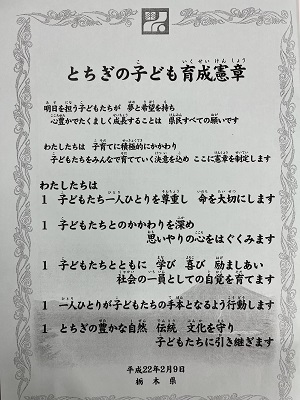 とちぎの子ども育成憲章
明日を担う子どもたちが 夢と希望を持ち
心豊かでたくましく成長することは 県民すべての願いです
わたしたちは 子育てに積極的にかかわり
子どもたちをみんなで育てていく決意を込め ここに憲章を制定します
わたしたちは
1 子どもたち一人ひとりを尊重し 命を大切にします
1 子どもたちとのかかわりを深め
思いやりの心をはぐくみます
1 子どもたちとともに 学び 喜び 励ましあい
社会の一員としての自覚を育てます
1 一人ひとりが子どもたちの手本となるよう行動します
1 とちぎの豊かな自然 伝統 文化を守り
子どもたちに引き継ぎます
平成22年2月9日
栃木県